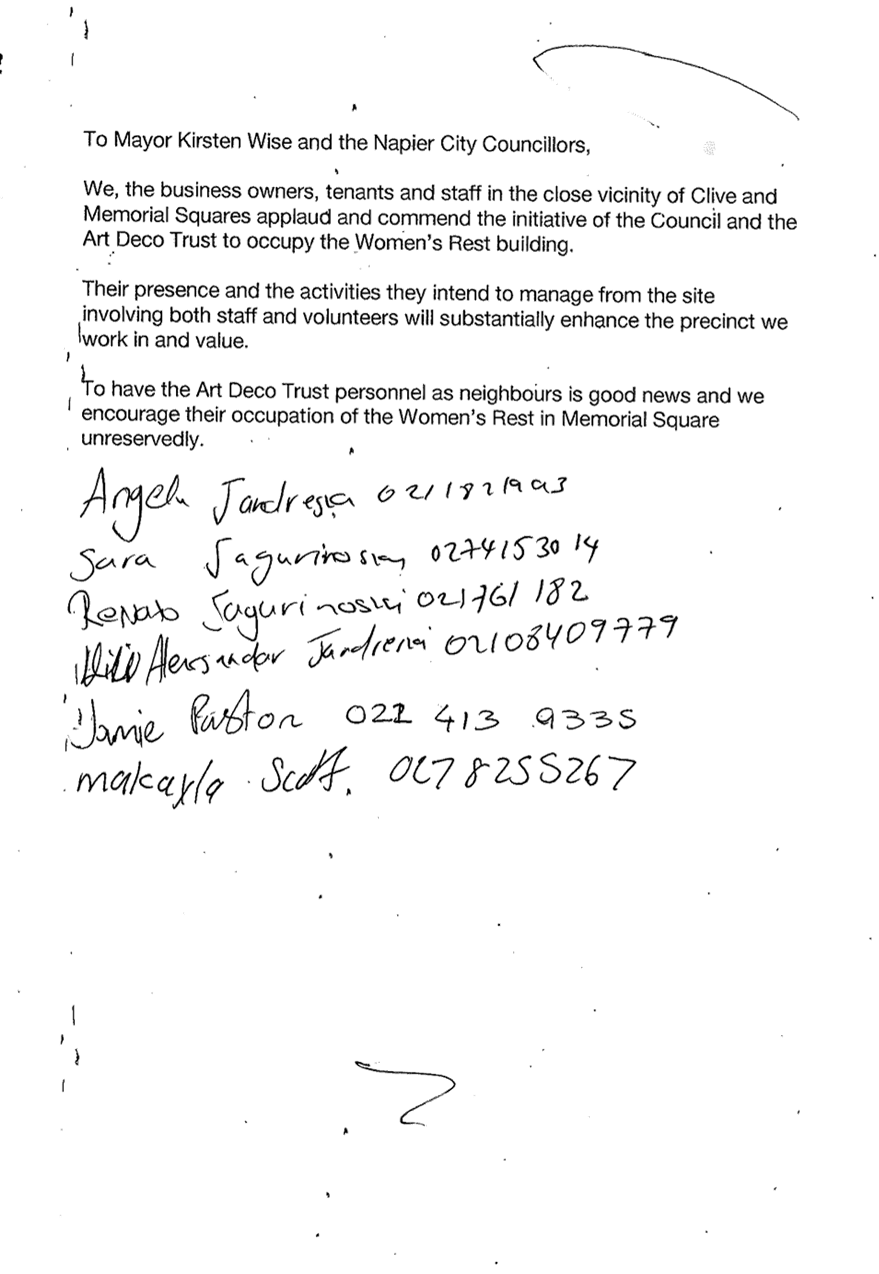 To Mayor Kirsten Wise and the Napier City Councillors,
We, the business owners, tenants and staff in the close vicinity of Clive and
Memorial Squares applaud and commend the initiative of the Council and the
Art Deco Trust to occupy the Women's Rest building.
Their presence and the activities they intend to manage from the site
involving both staff and volunteers will substantially enhance the precinct we
work in and value.
To have the Art Deco Trust personnel as neighbours is good news and we
encourage their occupation of the Women's Rest in Memorial Square
unreservedly.
Angela
Sara 0274153014
Renato Jagurinoski 021761 182
02108409779
Jamie 022 413 9335
makayla Scott. 0278255267